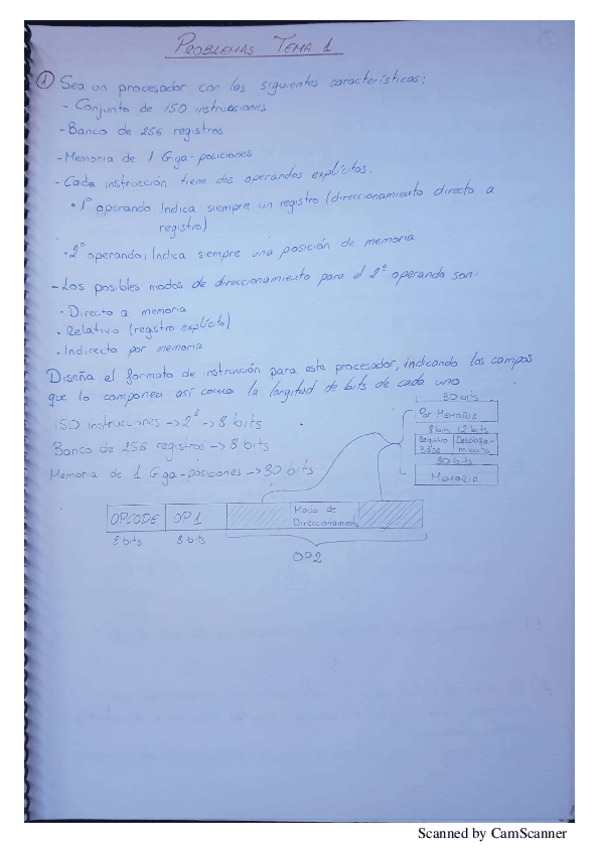 PROBLEMAS TEMA 1
① Sea un procesador con las siguientes características:
- Conjunto de 150 instrucciones
- Banco de 256 registros
- Memoria de 1 Giga-posiciones
- Cada instrucción tiene dos operandos explícitos.
• 1º operando: Indica siempre un registro (direccionamiento directo a
registro)
• 2º operando: Indica siempre una posición de memoria
- Los posibles modos de direccionamiento para el 2º operando son:
• Directo a memoria
• Relativo (registro explícito)
• Indirecto por memoria
Diseña el formato de instrucción para este procesador, indicando los campos
que lo componen así como la longitud de bits de cada uno
150 instrucciones -> 2⁸ -> 8 bits
Banco de 256 registros -> 8 bits
Memoria de 1 Giga-posiciones -> 30 bits
30 bits
MEMORIA
8 bits 12 bits
Registro Desplaza-
Base miento
30 bits
MEMORIA
OPCODE OP1 Modo de
Direccionamiento
8 bits 8 bits
OP2
Scanned by CamScanner